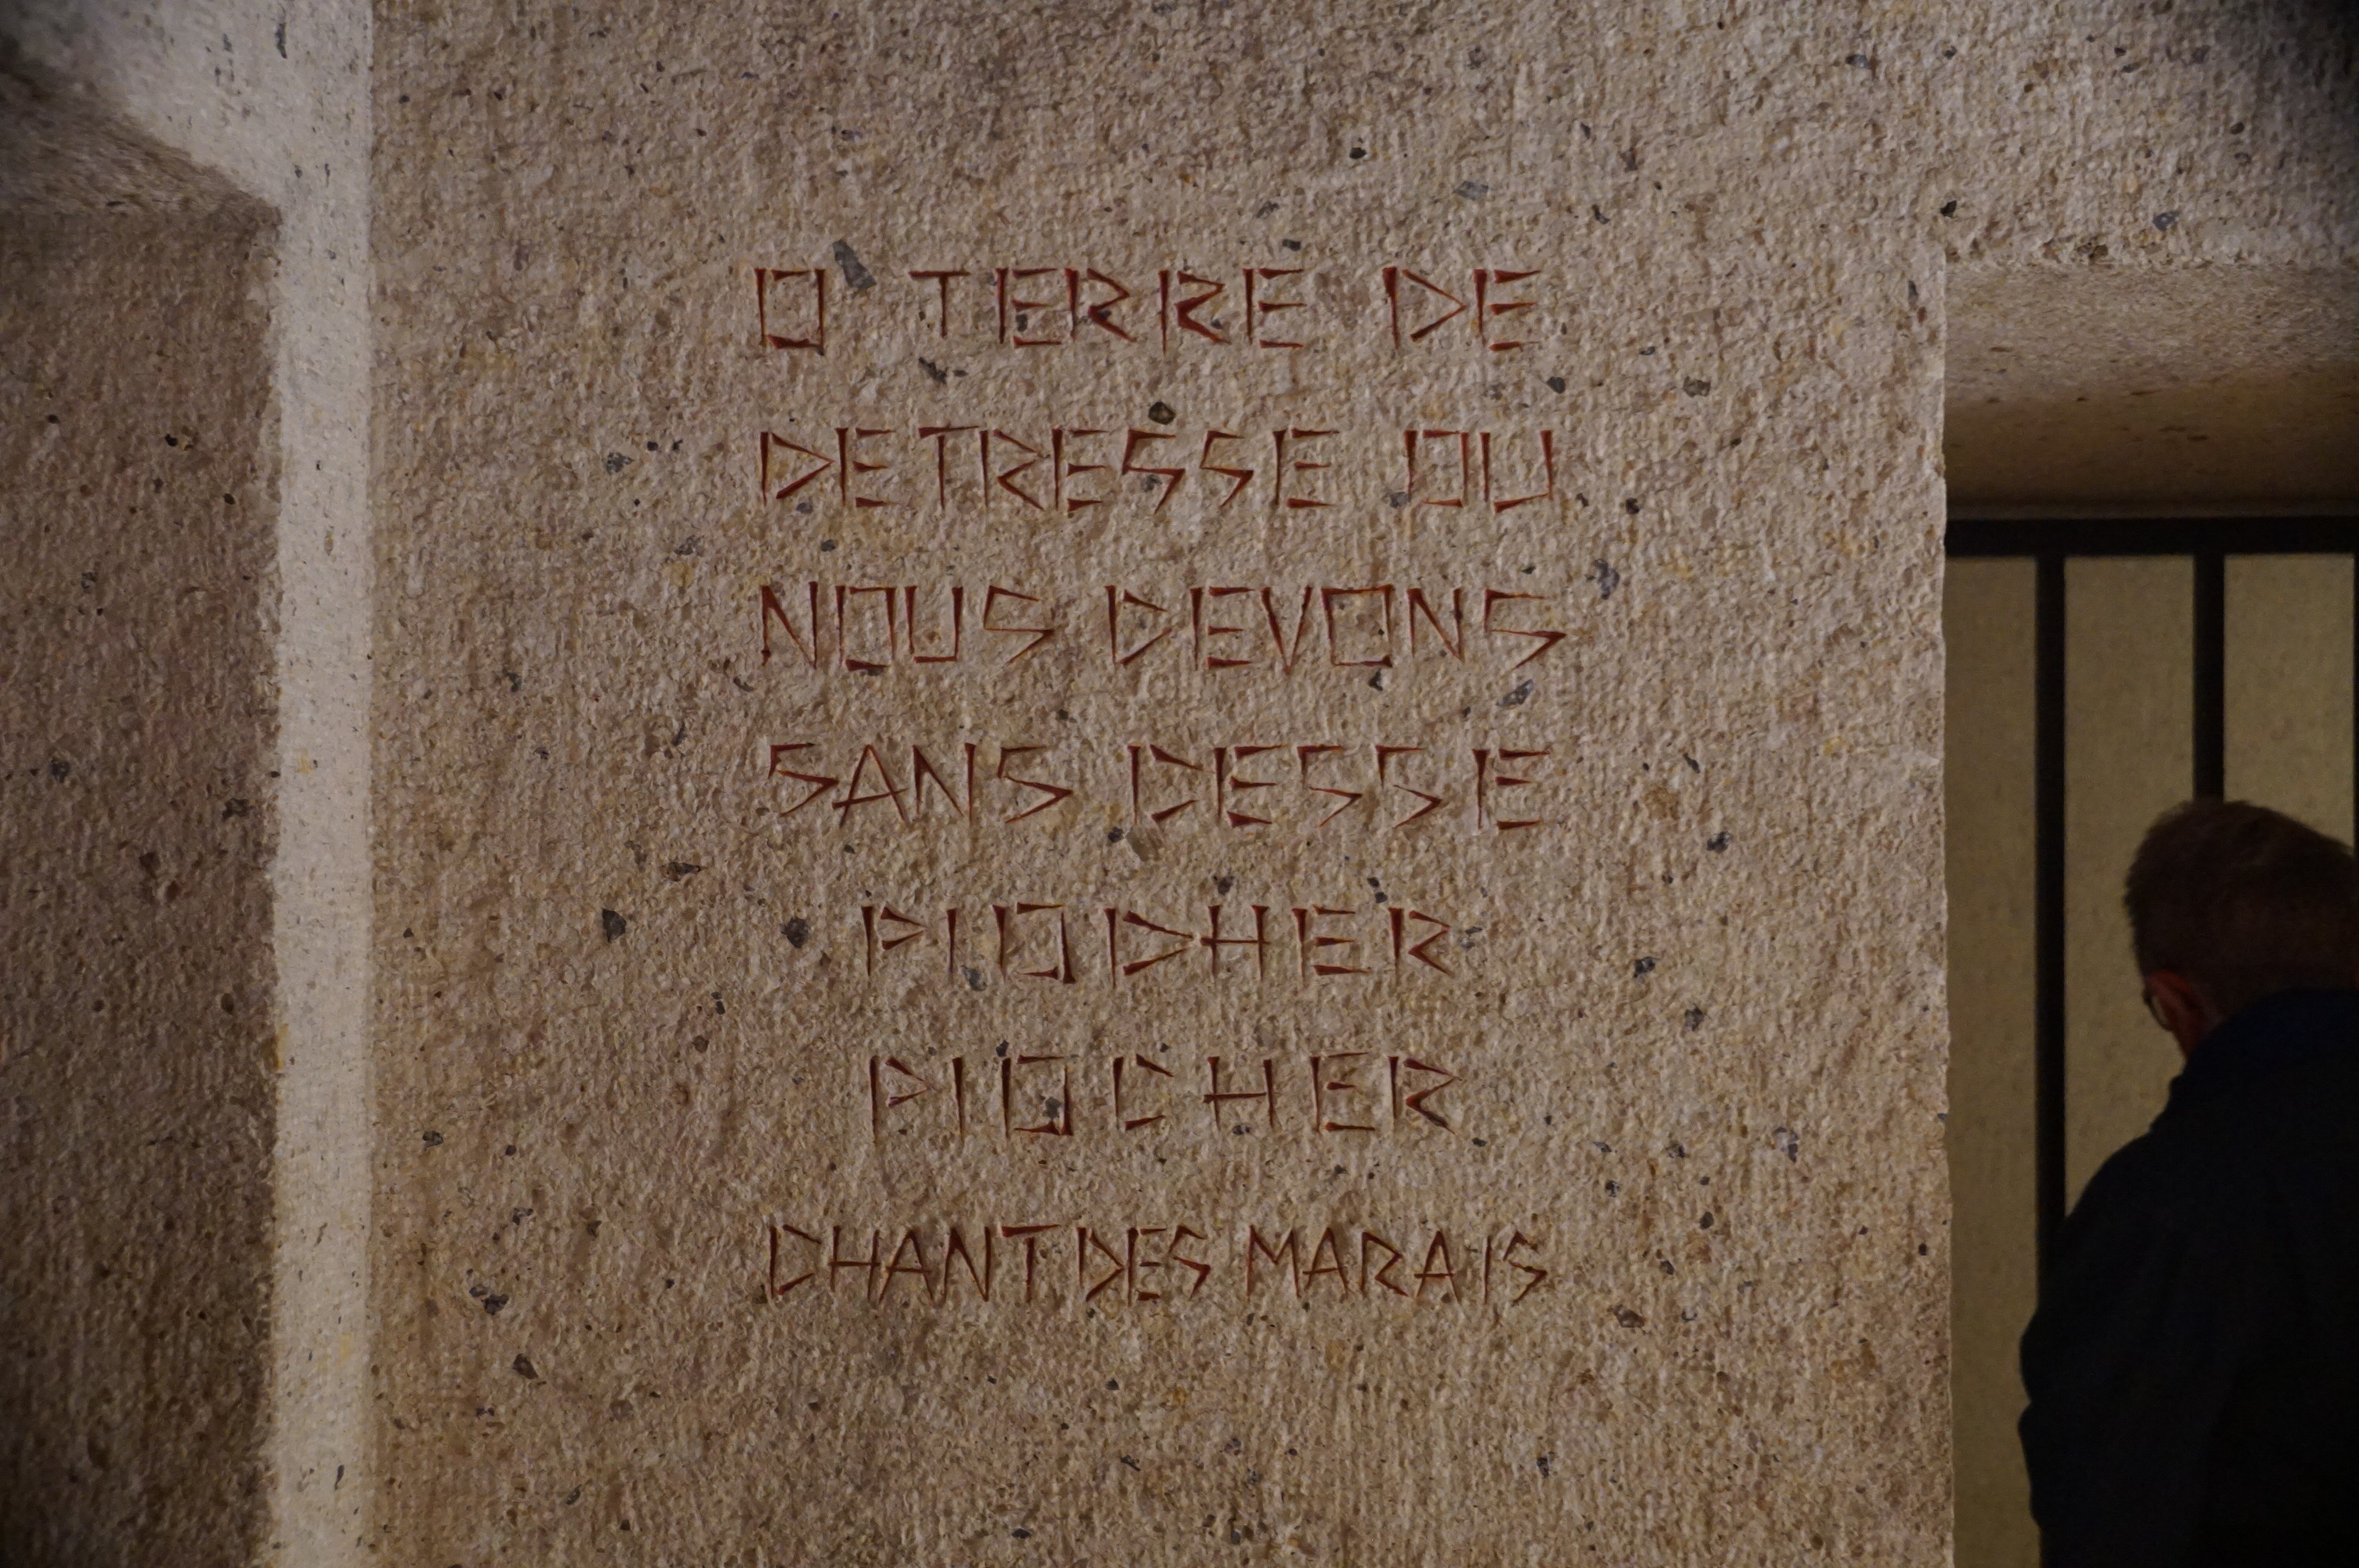 O TERRE DE
DETRESSE OU
NOUS DEVONS
SANS CESSE
PIOCHER
PIOCHER
CHANT DES MARAIS